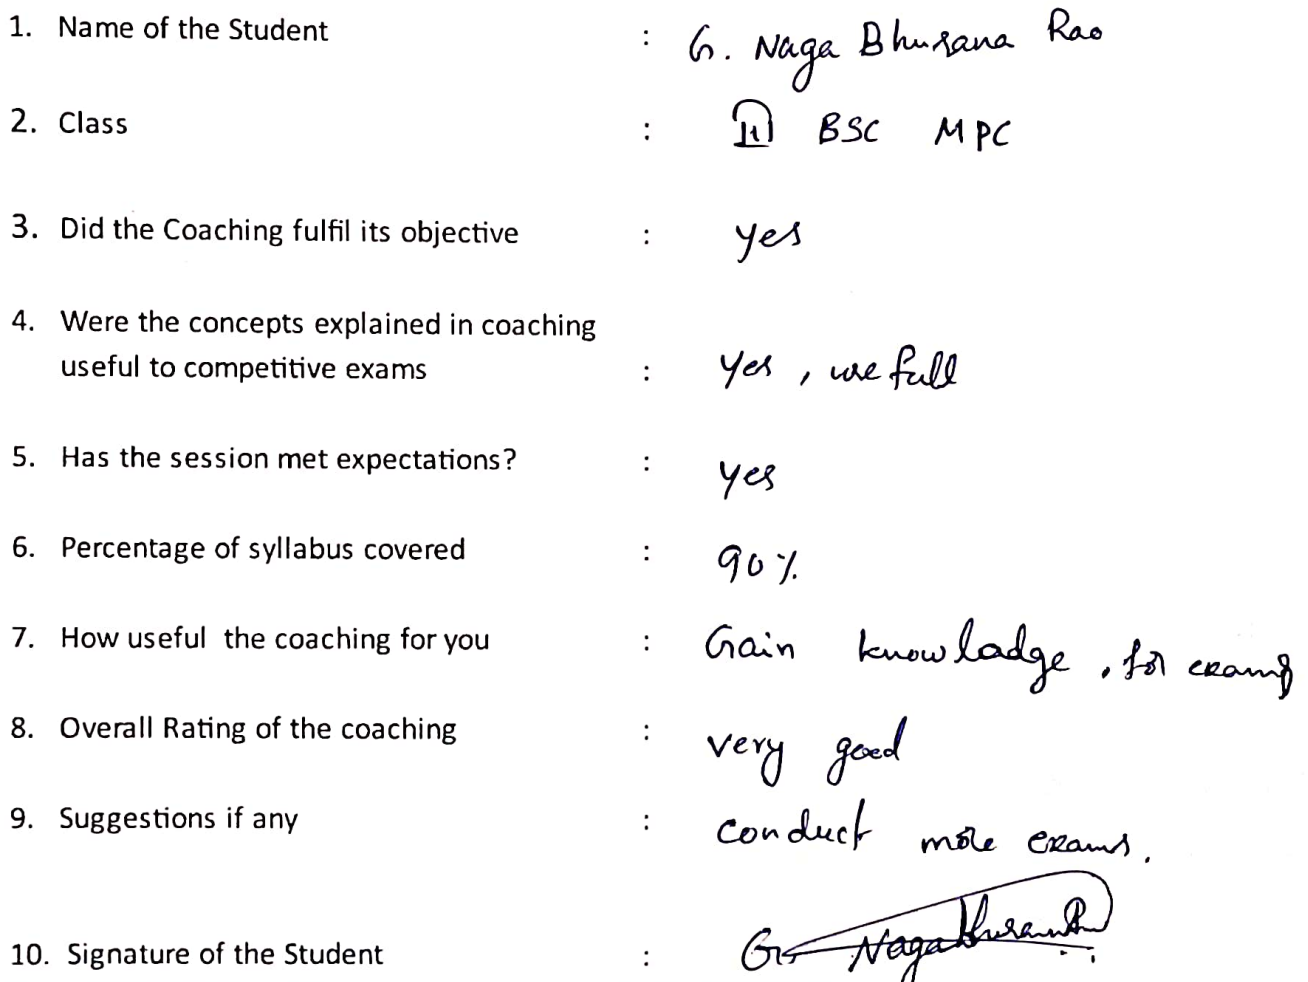 1. Name of the Student : G. Naga Bhusana Rao
2. Class : II BSC MPC
3. Did the Coaching fulfil its objective : yes
4. Were the concepts explained in coaching
useful to competitive exams : yes, usefull
5. Has the session met expectations? : yes
6. Percentage of syllabus covered : 90%
7. How useful the coaching for you : Gain knowladge, for exams
8. Overall Rating of the coaching : very good
9. Suggestions if any : conduct more exams.
10. Signature of the Student : G. Nagabhusana